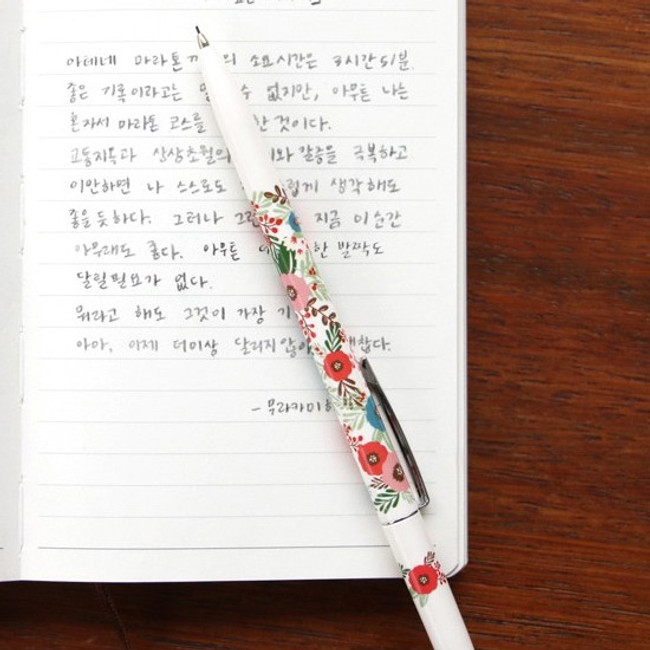 아테네 마라톤 의 소요시간은 3시간 51분.
좋은 기록이라고는 수 없지만, 아무튼 나는
혼자서 마라톤 코스를 한 것이다.
교통지옥과 상상초월의 갈증을 극복하고
이만하면 나 스스로도 생각해도
좋을 듯하다. 그러나 지금 이 순간
아무래도 좋다. 아무튼 한 발짝도
달릴 필요가 없다.
뭐라고 해도 그것이 가장
아아, 이제 더이상 달리지 않아
- 무라카미